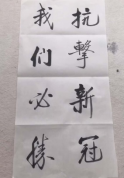 抗擊新冠
我们必勝